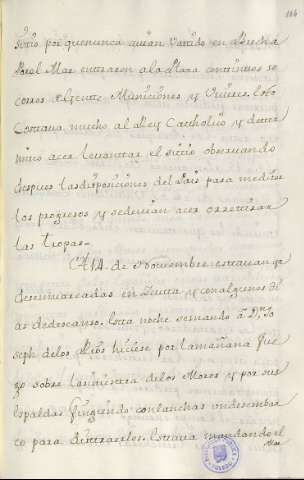 166
sitio por que nunca avian Vatido en Brecha
Por el Mar entraron ala Plaza continuos so
corros de gente Municiones y Viveres, todo
Costava mucho al Rey Catholico y deter
mino acer levanttar el sitio observando
despues las disposiciones del Pais para meditar
los progresos y se devian acer o retirar
las tropas.
A 14 de Noviembre estavan ya
desembarcadas en Zeuta y con algunos di
as de descanso, esta noche se mando a Dn Jo
seph delos Rios hiciese por la mañana fue
go sobre la trinchera delos Moros y por sus
espaldas fingiendo con lanchas un desembar
co para divertirlos, estava mandando el
Mar